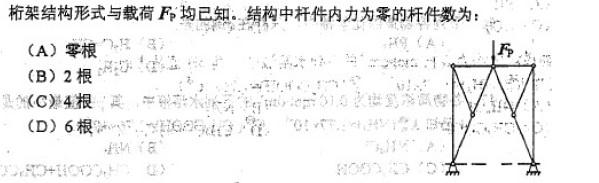 桁架结构形式与载荷 Fₚ 均已知。结构中杆件内力为零的杆件数为：
（A）零根
（B）2 根
（C）4 根
（D）6 根
Fₚ